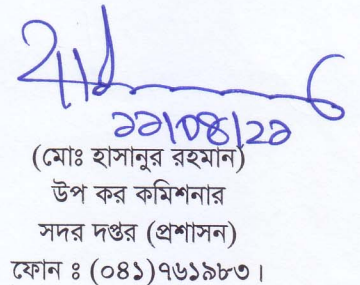 ২২/০৪/২১
(মোঃ হাসানুর রহমান)
উপ কর কমিশনার
সদর দপ্তর (প্রশাসন)
ফোন ঃ (০৪১)৭৬১৯৮৩।